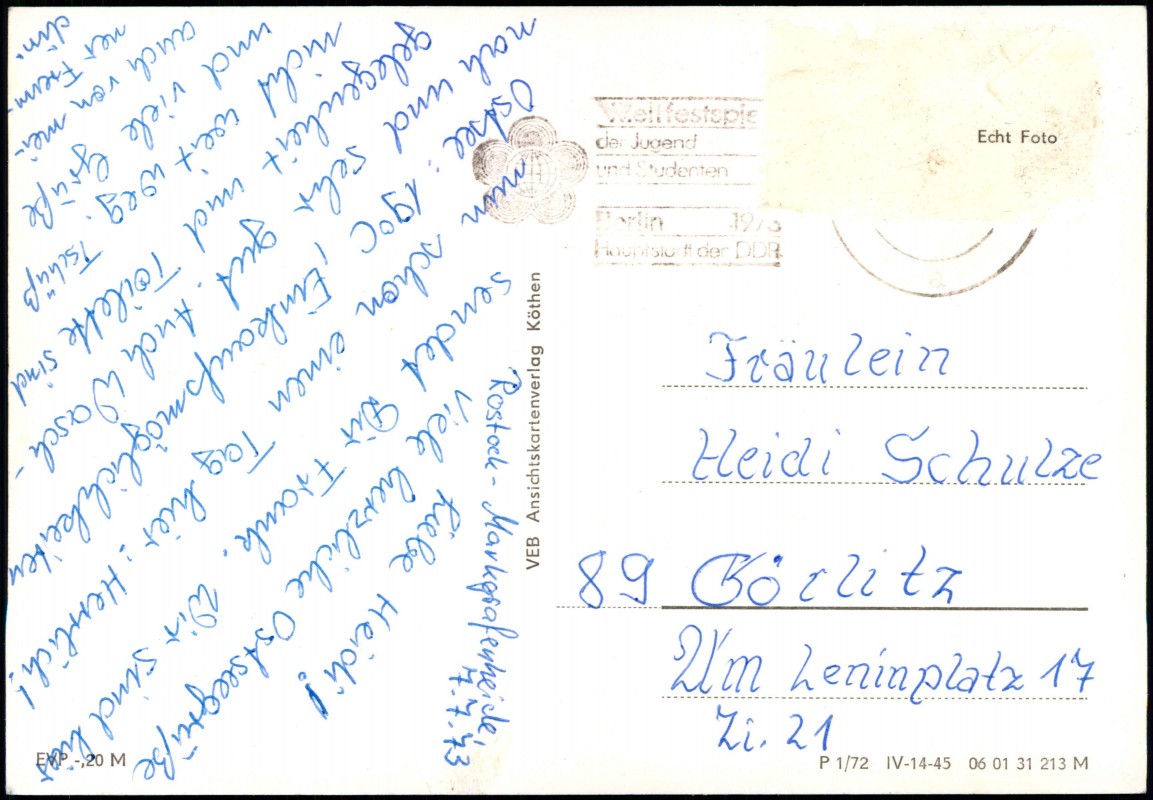 Rostock-Markgrafenheide,
7.7.73
Liebe Heidi!
Viele herzliche Ostseegrüße
sendet Dir Frank. Wir sind hier
nun schon einen Tag hier: Herrlich!
Ostsee: 19°C, Einkaufsmöglichkeiten
nah und sehr gut. Auch Wasch-
gelegenheit und Toilette sind
nicht weit weg. Tschüß
und viele Grüße
auch von mei-
ner Freun-
din.
EVP -,20 M
VEB Ansichtskartenverlag Köthen
Weltfestspie
der Jugend
und Studenten
Berlin 1973
Hauptstadt der DDR
Echt Foto
a
Fräulein
Heidi Schulze
89 Görlitz
Am Leninplatz 17
Zi. 21
P 1/72 IV-14-45 06 01 31 213 M